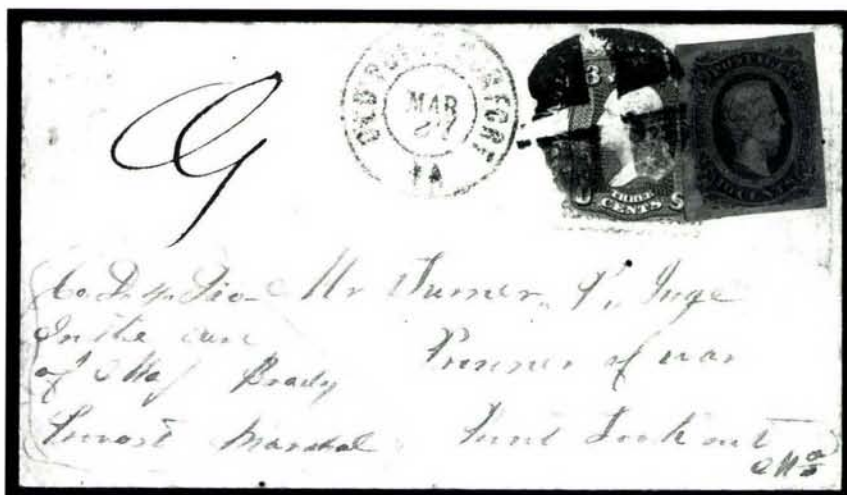 OLD POINT COMFORT
MAR
27
VA
3
THREE
CENTS
Co. D. 4 Div. Mr Turner P. Inge
In the care
of Maj Brady
Prisoner of war
Provost Marshal
Point Lookout
Md